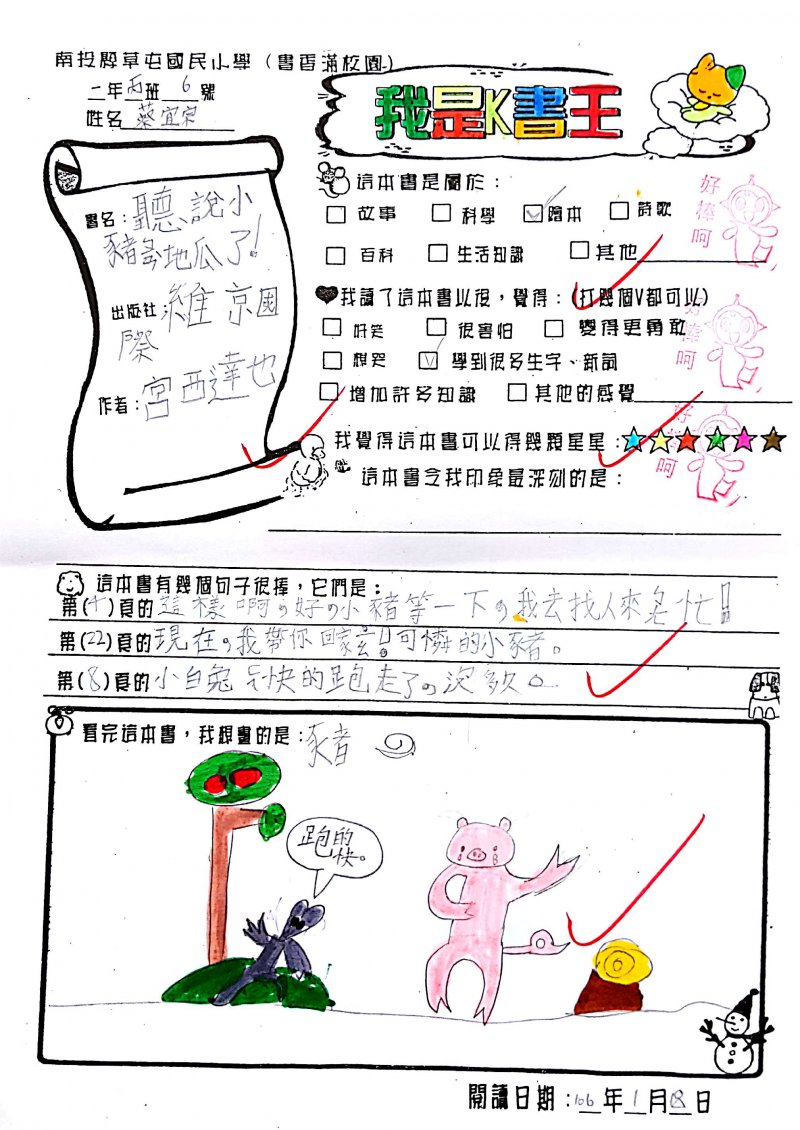 南投縣草屯國民小學（書香滿校園）
二年丙班 6 號
姓名 蔡宜家
我是K書王
書名：聽說小
豬多地瓜了！
出版社：維京國
際
作者：宮西達也
這本書是屬於：
□故事 □科學 ☑繪本 □詩歌
□百科 □生活知識 □其他
好棒呵
我讀了這本書以後，覺得：(打幾個V都可以)
□好笑 □很害怕 □變得更勇敢
□想哭 ☑學到很多生字、新詞
□增加許多知識 □其他的感覺
好棒呵
我覺得這本書可以得幾顆星星：
好呵
這本書令我印象最深刻的是：
這本書有幾個句子很棒，它們是：
第(十)頁的這樣啊，好，小豬等一下，我去找人來忙！
第(22)頁的現在，我帶你回家去！可憐的小豬。
第(8)頁的小白兔 快的跑走了，
看完這本書，我想畫的是：豬
跑的
快。
閱讀日期：106年1月 日